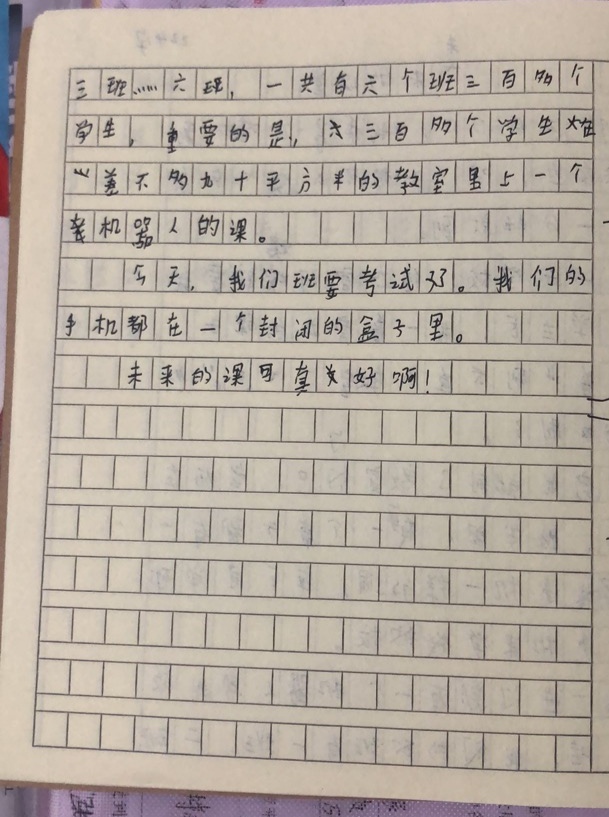 三班……六班，一共有六个班三百多个
学生，重要的是，三百多个学生
差不多九十平方米的教室里上一个
机器人的课。
今天，我们班要考试了。我们的
手机都在一个封闭的盒子里。
未来的课可真美好啊！